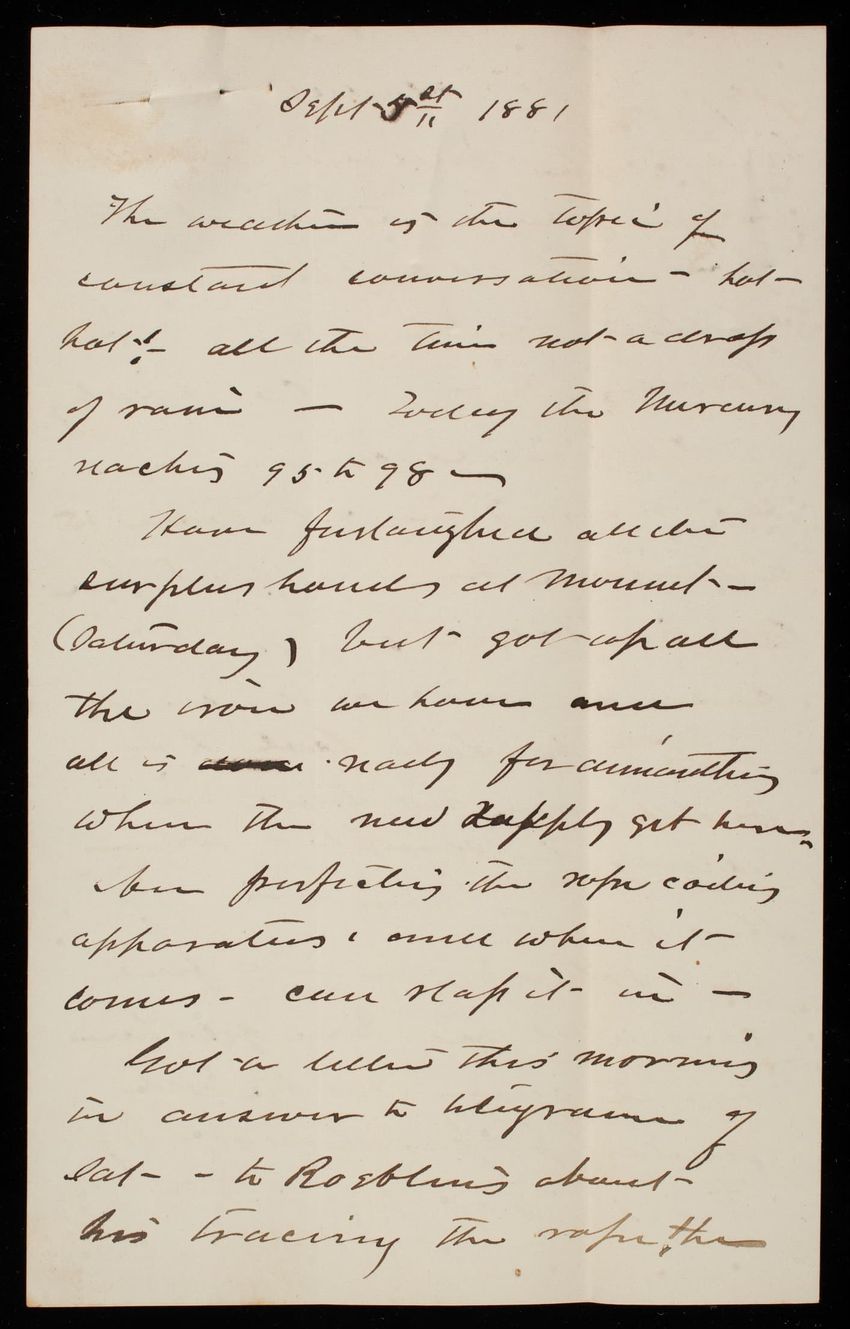 Sept 5 1881
The weather is the topic of
constant conversation - hot -
hot! - all the time not a drop
of rain - Today the Mercury
reaches 95 to 98 -
Have furloughed all the
surplus hands at Mount -
(Saturday) but got up all
the iron we have and
all is ready for anything
when the new supply get here.
Am perfecting the rope coiling
apparatus, and when it
comes - can slap it in -
Got a letter this morning
in answer to telegram of
Sat - - to Roeblins about
his tracing the rope, the